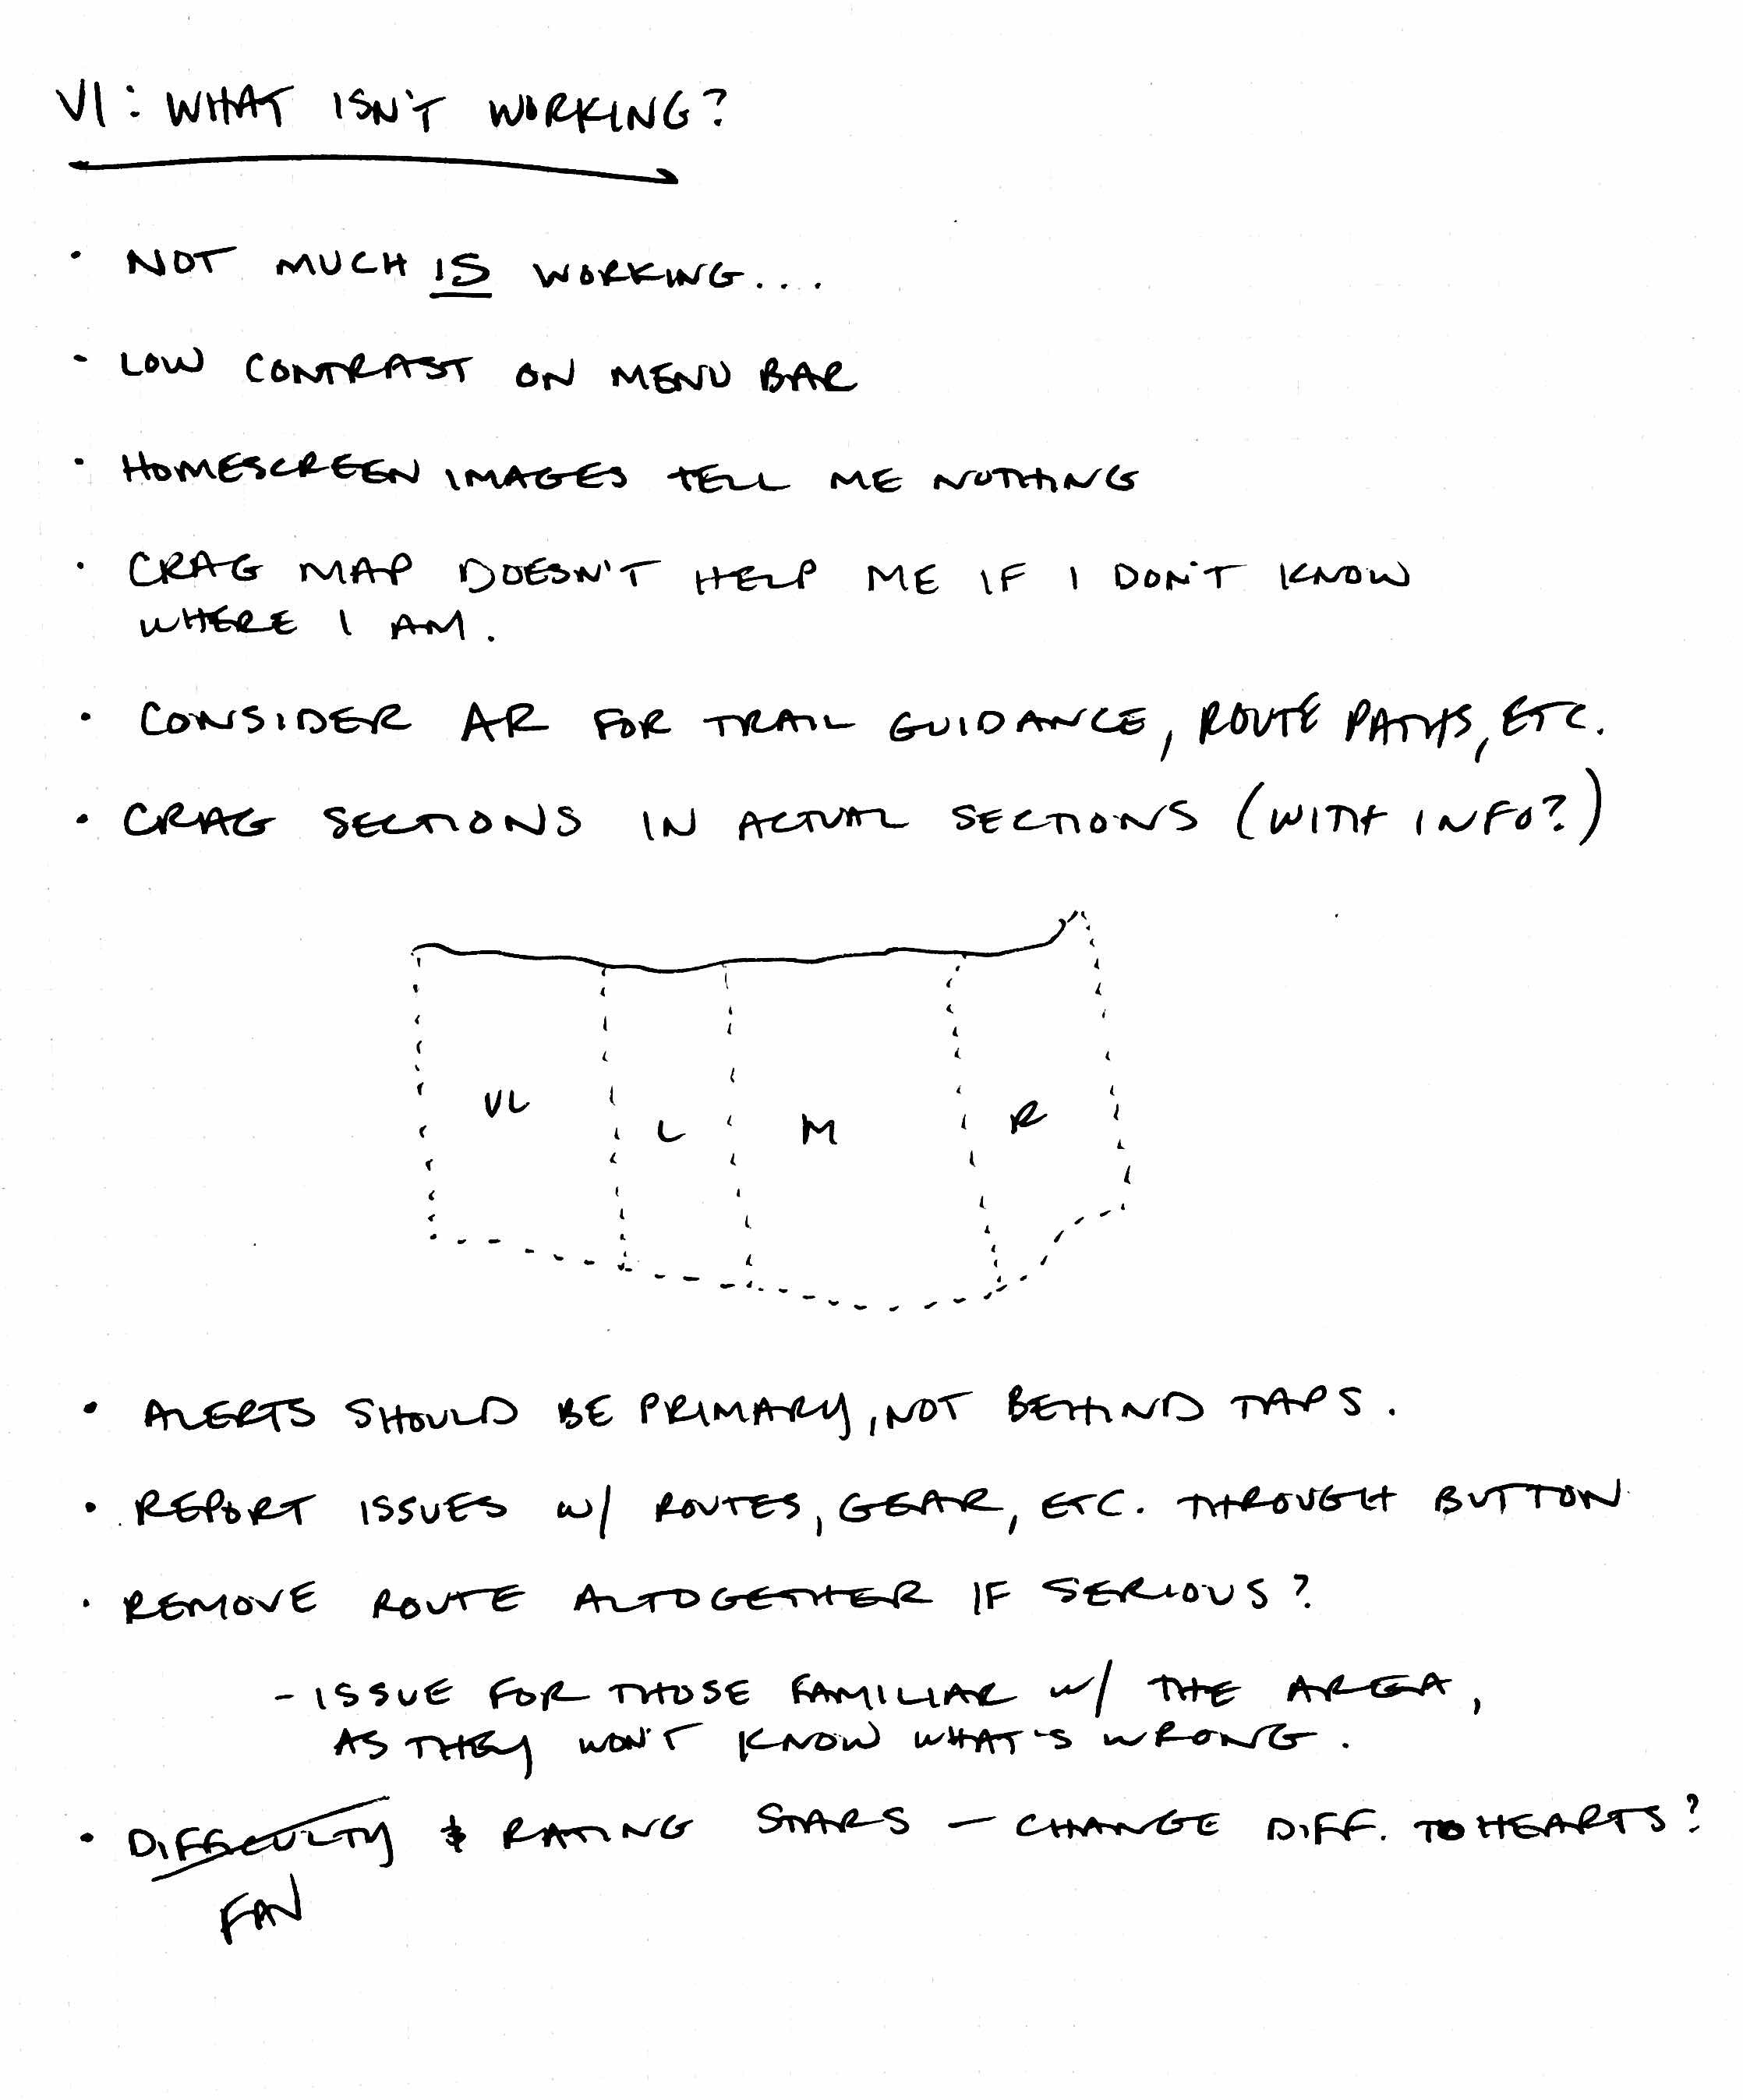 V1: WHAT ISN'T WORKING?
· NOT MUCH IS WORKING...
· LOW CONTRAST ON MENU BAR
· HOMESCREEN IMAGES TELL ME NOTHING
· CRAG MAP DOESN'T HELP ME IF I DON'T KNOW
WHERE I AM.
· CONSIDER AR FOR TRAIL GUIDANCE, ROUTE PATHS, ETC.
· CRAG SECTIONS IN ACTUAL SECTIONS (WITH INFO?)
VL L M R
· ALERTS SHOULD BE PRIMARY, NOT BEHIND TAPS.
· REPORT ISSUES W/ ROUTES, GEAR, ETC. THROUGH BUTTON
· REMOVE ROUTE ALTOGETHER IF SERIOUS?
- ISSUE FOR THOSE FAMILIAR W/ THE AREA,
AS THEY WON'T KNOW WHAT'S WRONG.
· DIFFICULTY & RATING STARS - CHANGE DIFF. TO HEARTS?
FAV